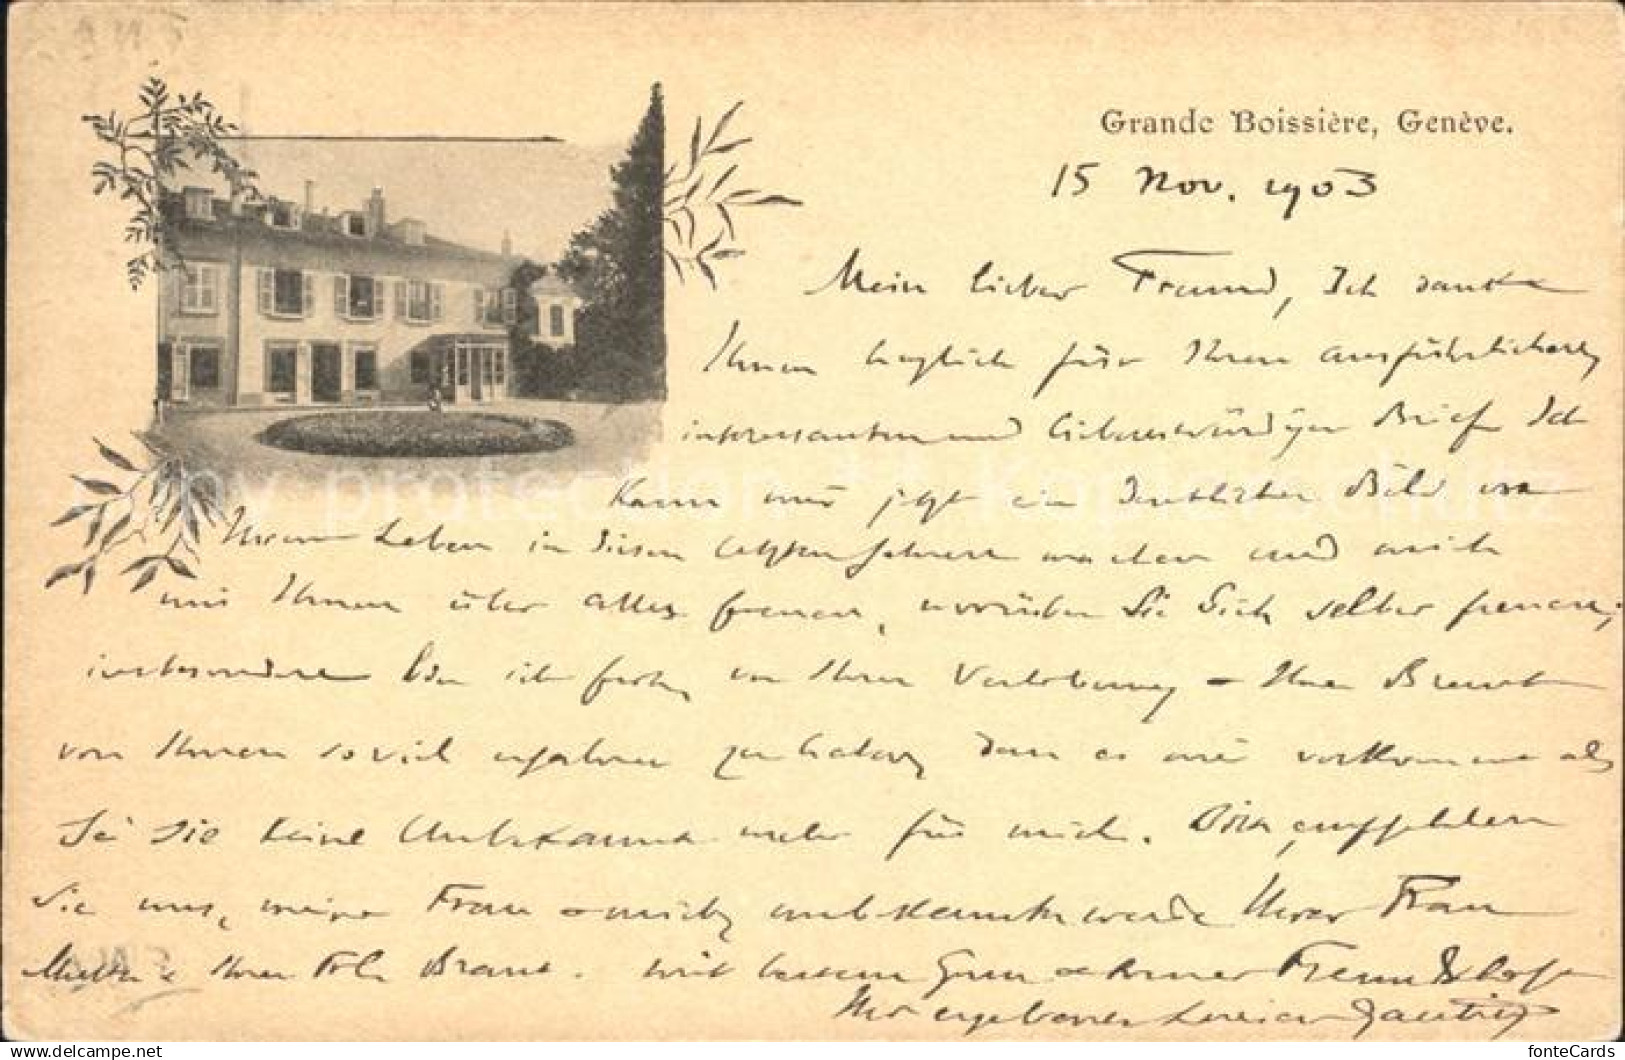 Grande Boissière, Genève.
15 Nov. 1903
Mein lieber Freund, Ich danke
Ihnen herzlich für Ihren ausführlichen,
interessanten und liebenswürdigen Brief. Ich
kann mir jetzt ein deutliches Bild von
Ihrem Leben in diesen letzten Jahren machen und mich
mit Ihnen über alles freuen, worüber Sie Sich selber freuen;
insbesondere bin ich froh, von Ihrer Verlobung - Ihrer Braut
von Ihnen so viel erfahren zu haben, dass es mir vorkommt als
sei sie keine Unbekannte mehr für mich. Bitte, empfehlen
Sie uns, meine Frau + mich, unbekannterweise Ihrer Frau
Mutter + Ihrer Frl. Braut. Mit bestem Gruss + Freundschaft
Ihr ergebener Gautier
my protection ** Kopierschutz
fonteCards